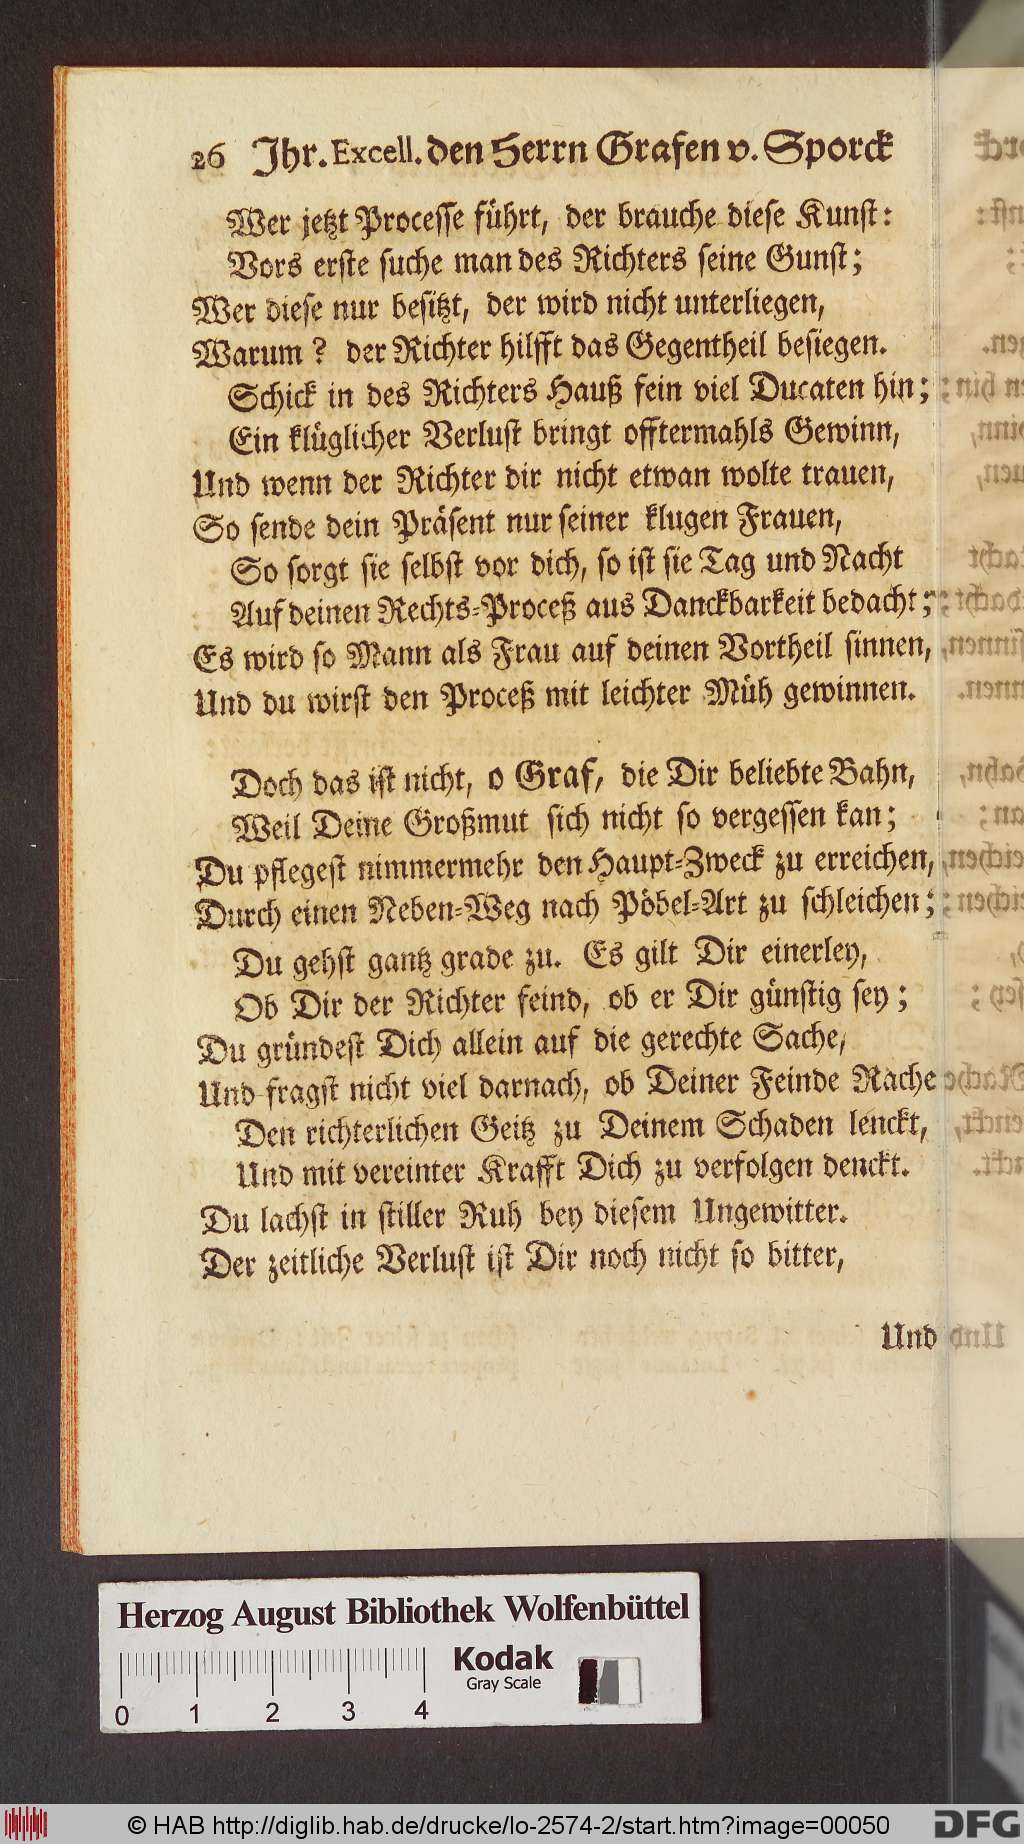 26 Jhr. Excell. den Herrn Grafen v. Sporck
Wer jetzt Processe führt, der brauche diese Kunst:
Vors erste suche man des Richters seine Gunst;
Wer diese nur besitzt, der wird nicht unterliegen,
Warum? der Richter hilfft das Gegentheil besiegen.
Schick in des Richters Hauß fein viel Ducaten hin;
Ein klüglicher Verlust bringt offtermahls Gewinn,
Und wenn der Richter dir nicht etwan wolte trauen,
So sende dein Präsent nur seiner klugen Frauen,
So sorgt sie selbst vor dich, so ist sie Tag und Nacht
Auf deinen Rechts-Proceß aus Danckbarkeit bedacht;
Es wird so Mann als Frau auf deinen Vortheil sinnen,
Und du wirst den Proceß mit leichter Müh gewinnen.
Doch das ist nicht, o Graf, die Dir beliebte Bahn,
Weil Deine Großmut sich nicht so vergessen kan;
Du pflegest nimmermehr den Haupt-Zweck zu erreichen,
Durch einen Neben-Weg nach Pöbel-Art zu schleichen;
Du gehst gantz grade zu. Es gilt Dir einerley,
Ob Dir der Richter feind, ob er Dir günstig sey;
Du gründest Dich allein auf die gerechte Sache,
Und fragst nicht viel darnach, ob Deiner Feinde Rache
Den richterlichen Geitz zu Deinem Schaden lenckt,
Und mit vereinter Krafft Dich zu verfolgen denckt.
Du lachst in stiller Ruh bey diesem Ungewitter.
Der zeitliche Verlust ist Dir noch nicht so bitter,
Und
Herzog August Bibliothek Wolfenbüttel
Kodak
Gray Scale
0 1 2 3 4
© HAB http://diglib.hab.de/drucke/lo-2574-2/start.htm?image=00050
DFG